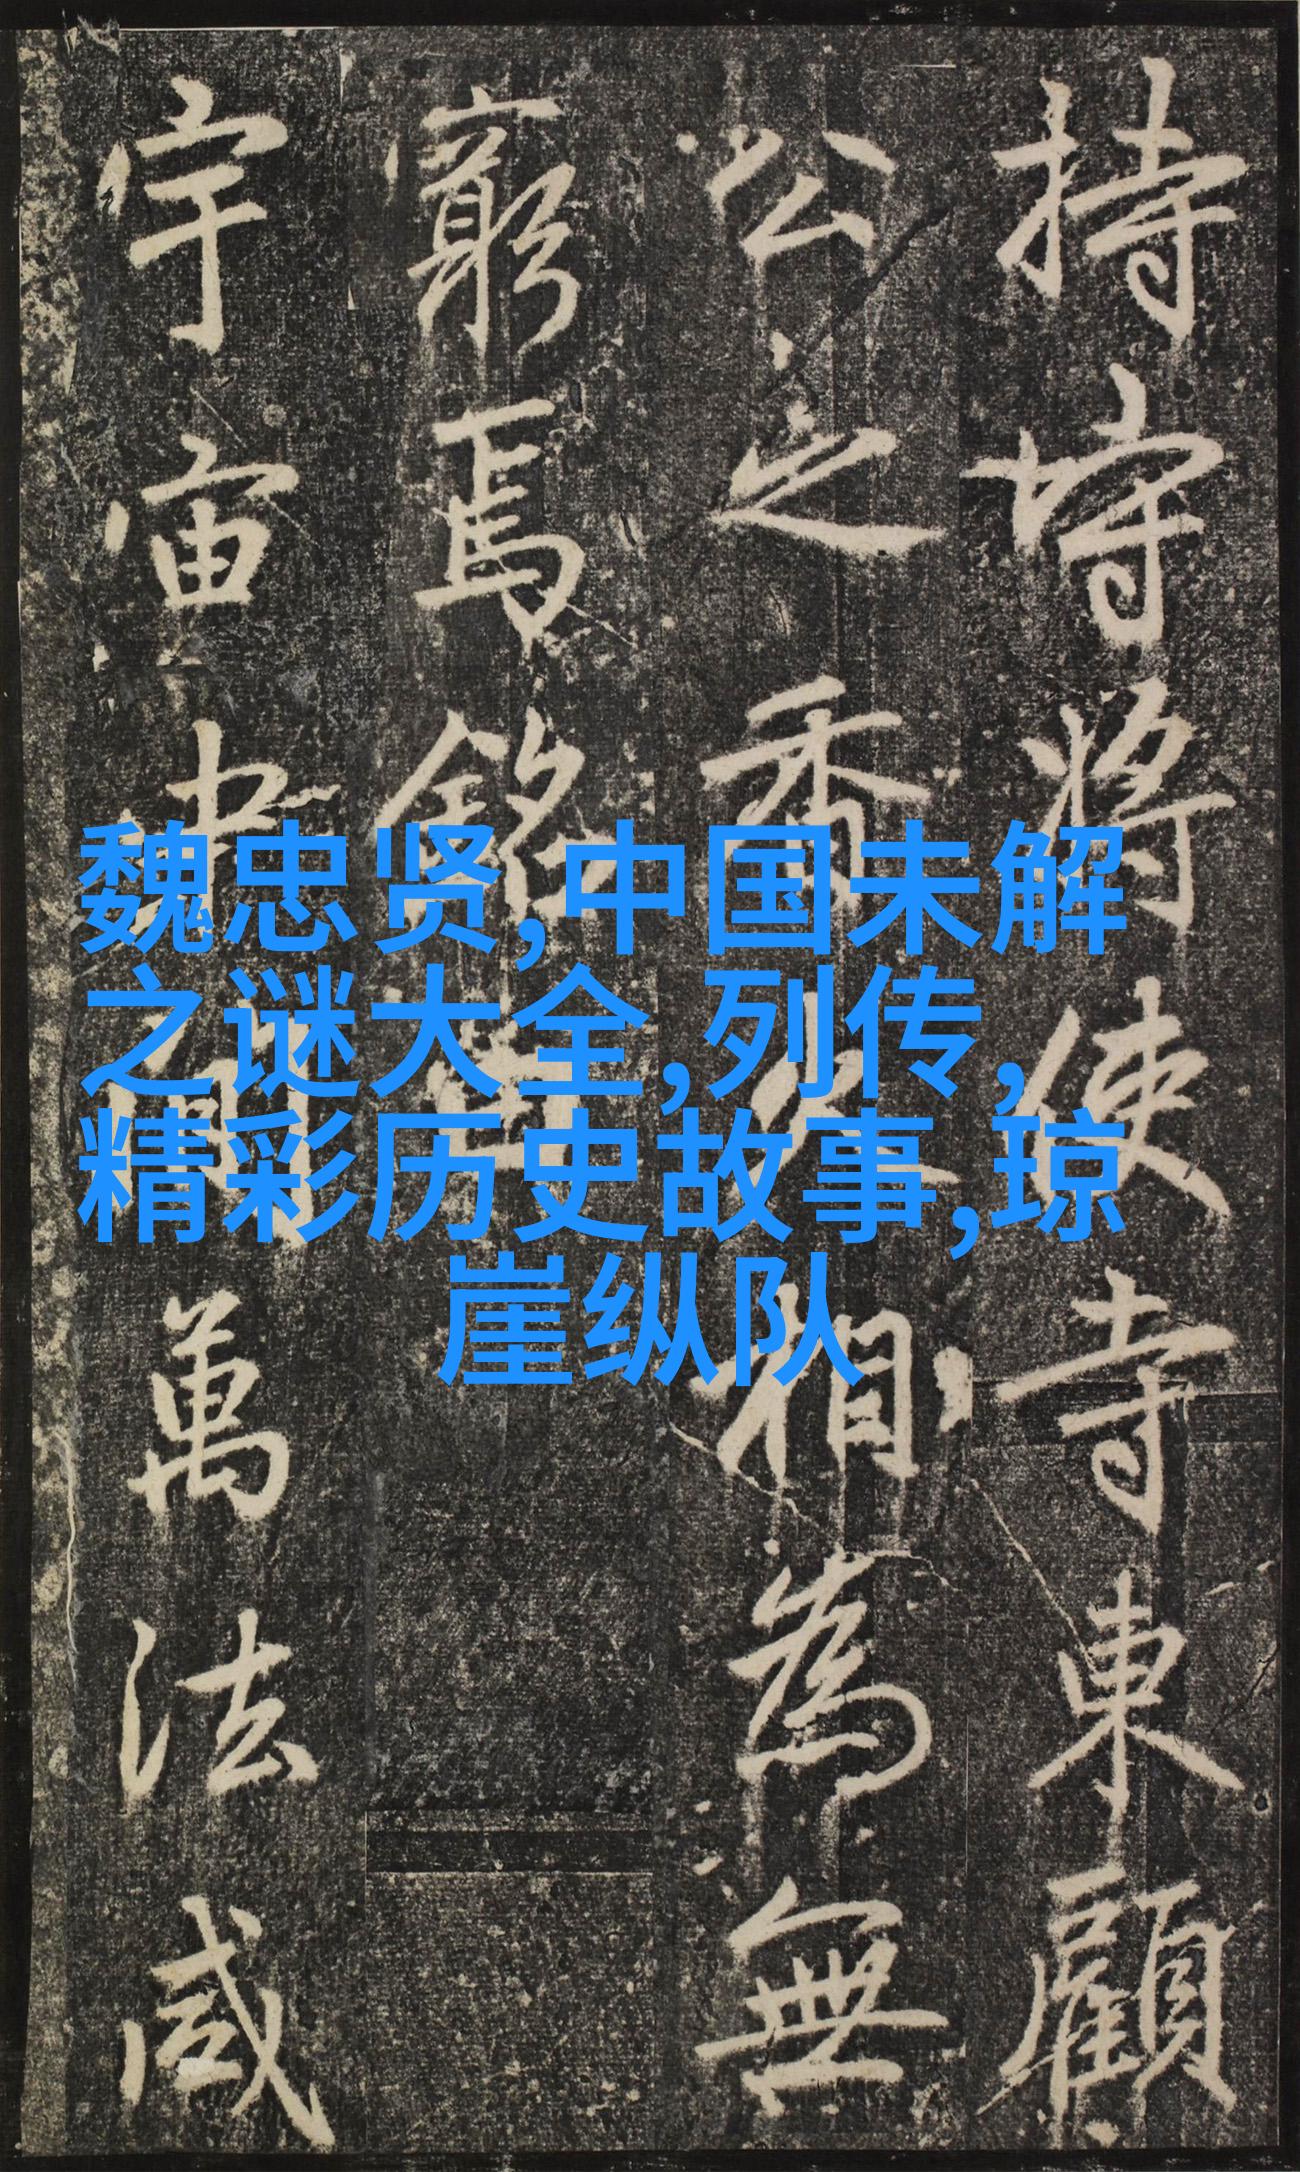 魏忠贤,中国未解
之谜大全,列传,
精彩历史故事,琼
崖纵队
持將使寺東顧
公之香火相為無
窮焉銘曰
宇宙萬法咸